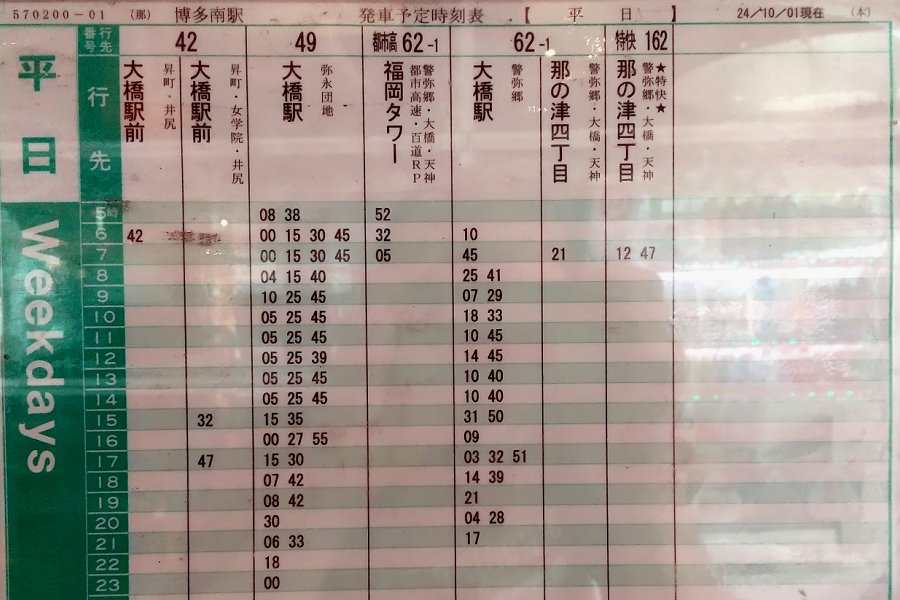 570200-01 (那) 博多南駅 発車予定時刻表 【 平 日 】 24/10/01現在 (本)
番号 行先 42 49 都市高 62-1 62-1 特快 162
平日
Weekdays
行先
大橋駅前 昇町・井尻
大橋駅前 昇町・女学院・井尻
大橋駅 弥永団地
福岡タワー 警弥郷・大橋・天神 都市高速・百道RP
大橋駅 警弥郷
那の津四丁目 警弥郷・大橋・天神
那の津四丁目 警弥郷・大橋・天神 ★特快★
5時 08 38 52
6 42 00 15 30 45 32 10
7 00 15 30 45 05 45 21 12 47
8 04 15 40 25 41
9 10 25 45 07 29
10 05 25 45 18 33
11 05 25 45 10 45
12 05 25 39 14 45
13 05 25 45 10 40
14 05 25 45 10 40
15 32 15 35 31 50
16 00 27 55 09
17 47 15 30 03 32 51
18 07 42 14 39
19 08 42 21
20 30 04 28
21 06 33 17
22 18
23 00